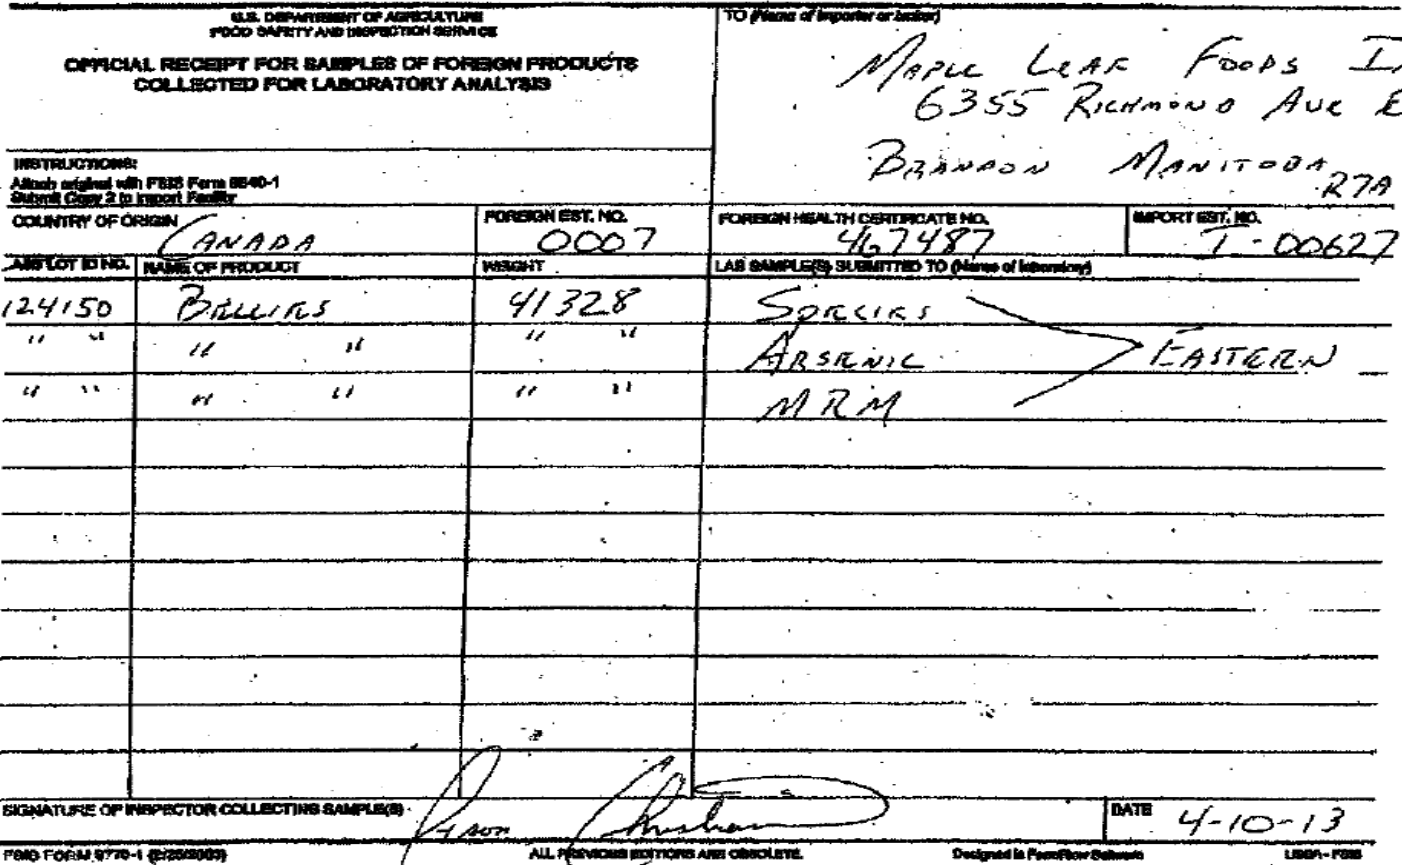 U.S. DEPARTMENT OF AGRICULTURE
FOOD SAFETY AND INSPECTION SERVICE
OFFICIAL RECEIPT FOR SAMPLES OF FOREIGN PRODUCTS
COLLECTED FOR LABORATORY ANALYSIS
TO (Name of importer or broker)
MAPLE LEAF FOODS
6355 RICHMOND AVE E
BRANDON MANITOBA
R7A
INSTRUCTIONS:
Attach original with FSIS Form 9540-1
Submit Copy 2 to Import Facility
COUNTRY OF ORIGIN
CANADA
FOREIGN EST. NO.
0007
FOREIGN HEALTH CERTIFICATE NO.
467487
IMPORT EST. NO.
I-00627
LOT ID NO. NAME OF PRODUCT WEIGHT LAB SAMPLE(S) SUBMITTED TO (Name of laboratory)
124150 BELLIES 41328 SPECIES
" " " " " " ARSENIC EASTERN
" " " " " " MRM
SIGNATURE OF INSPECTOR COLLECTING SAMPLE(S)
DATE 4-10-13
FSIS FORM 9770-1 ALL PREVIOUS EDITIONS ARE OBSOLETE. Designed in FormFlow Software USDA-FSIS